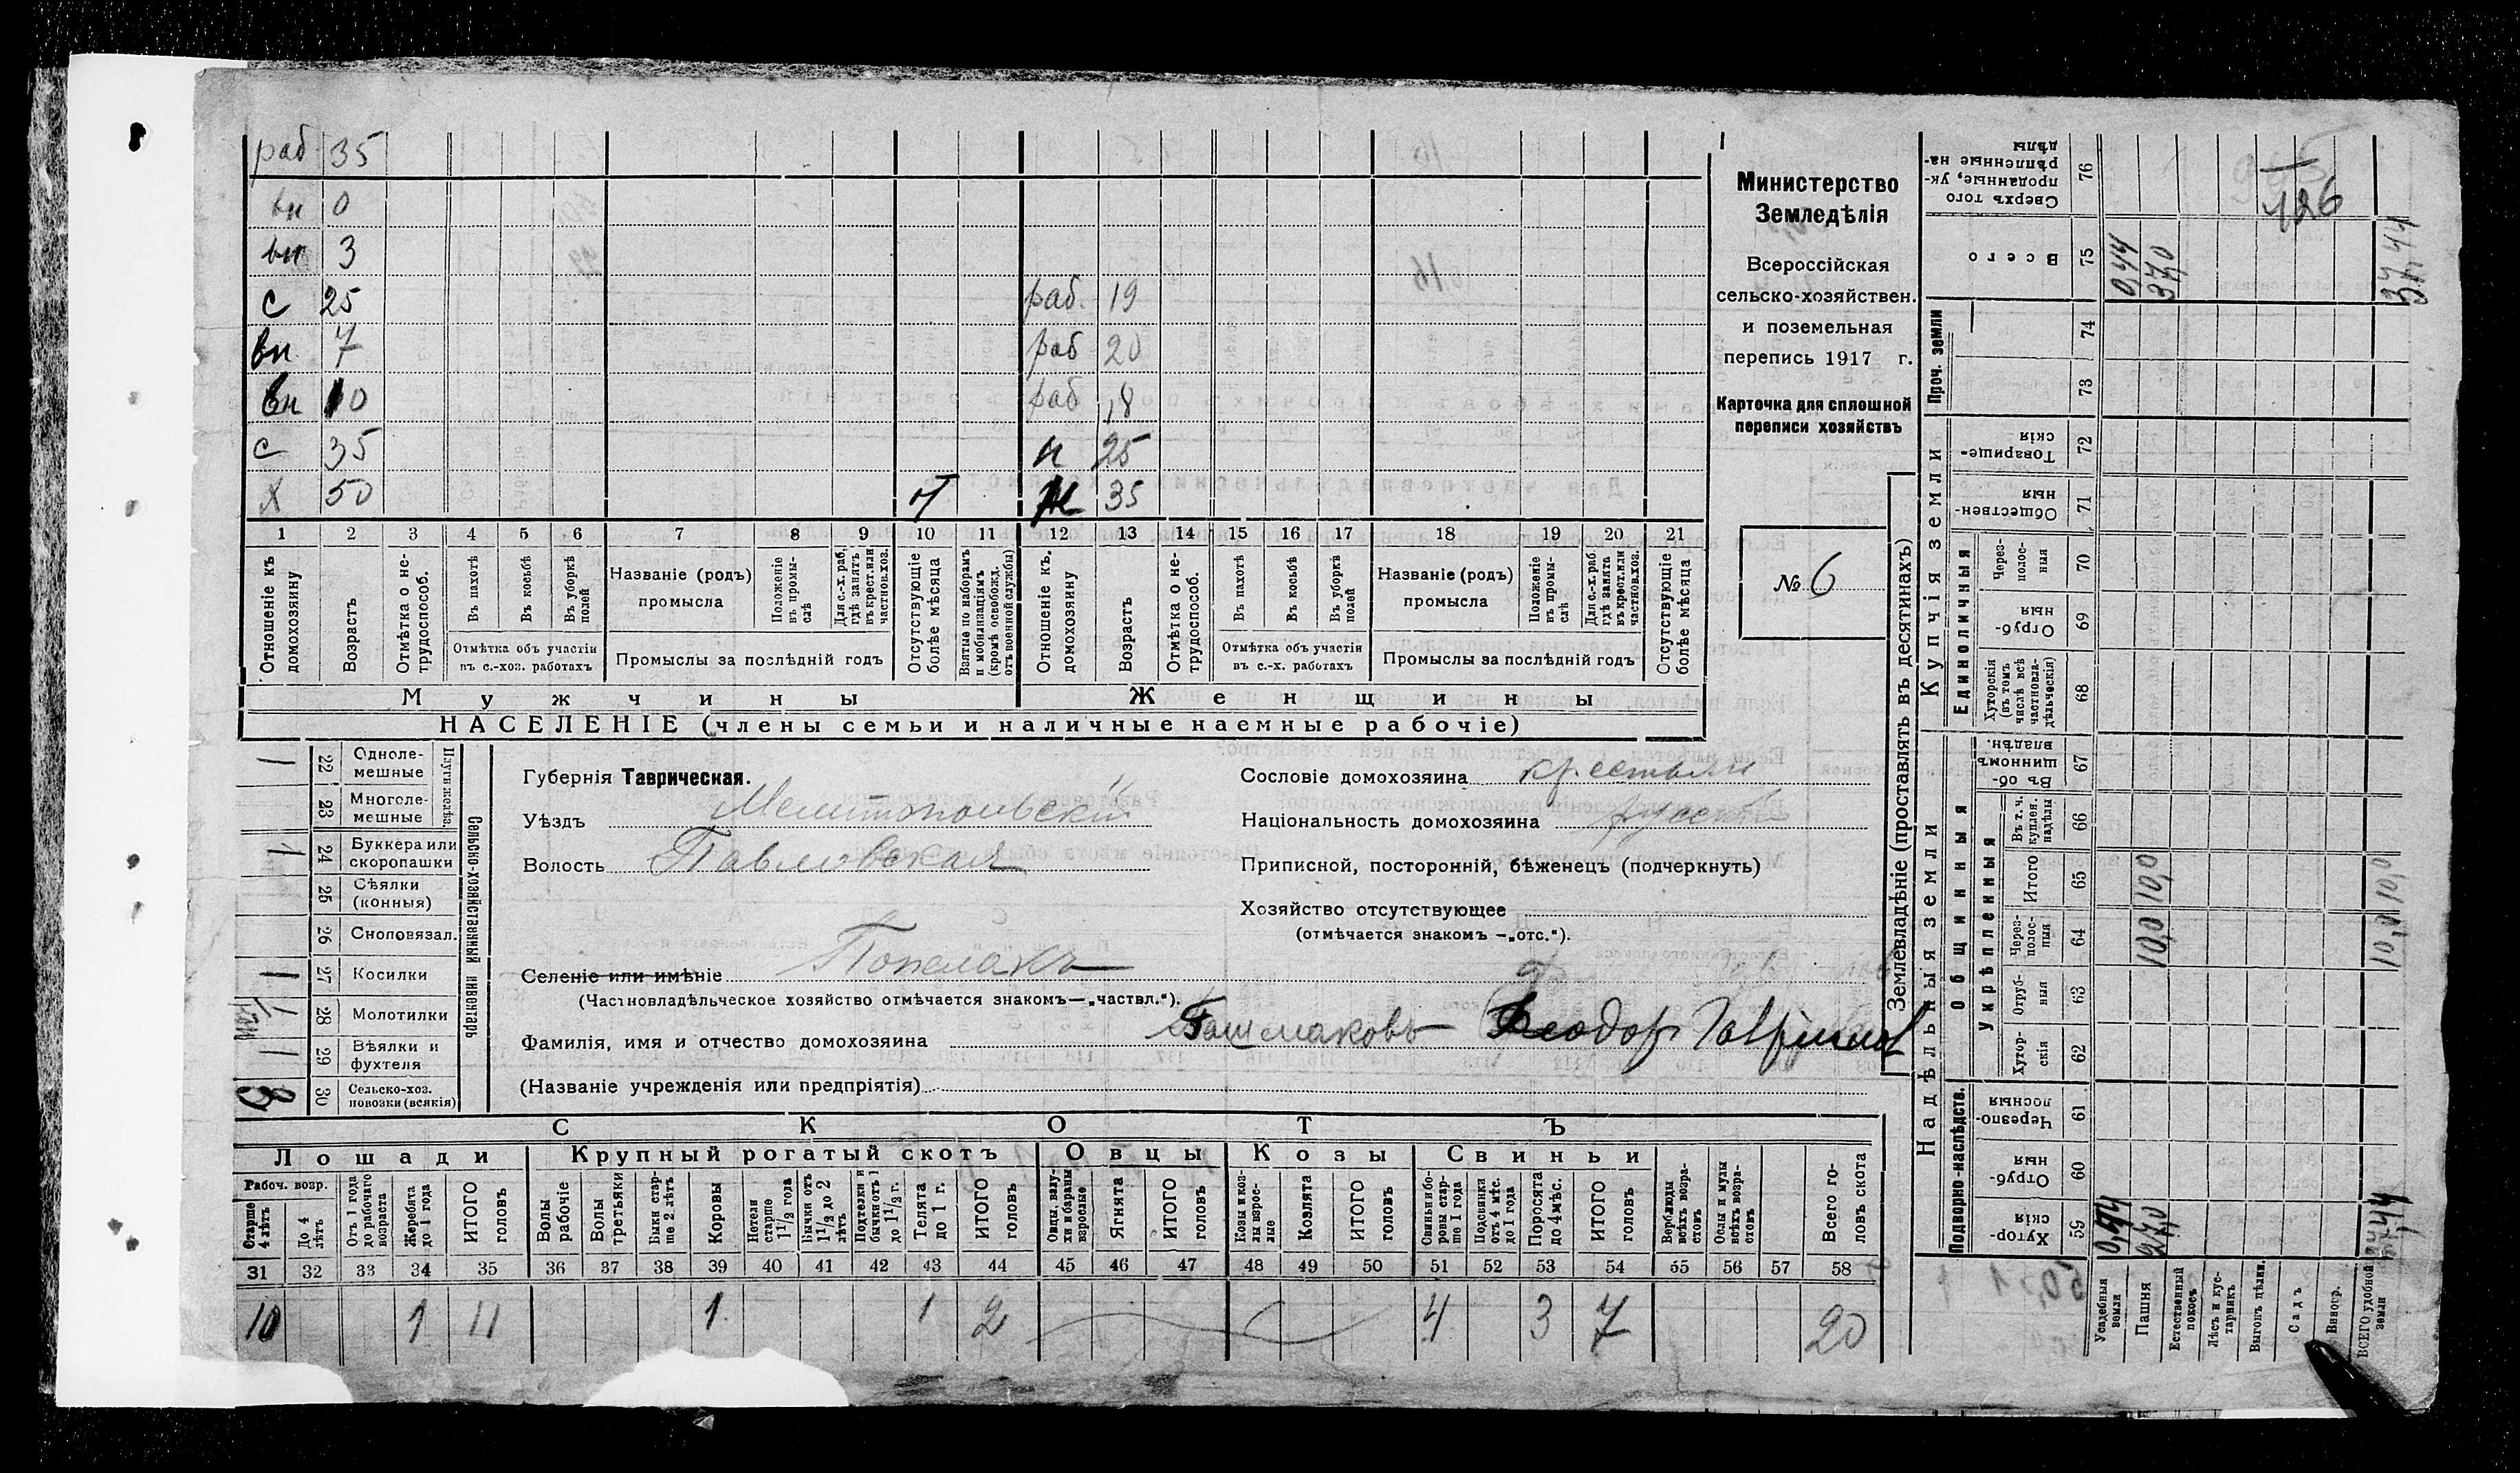 раб 35
вн 0
вн 3
с 25 раб. 19
вн 7 раб 20
вн 10 раб 18
с 35 н 25
Х 50 Ж 35
1 2 3 4 5 6 7 8 9 10 11 12 13 14 15 16 17 18 19 20 21
Отношеніе къ домохозяину
Возрастъ
Отмѣтка о нетрудоспособ.
Въ пахотѣ
Въ косьбѣ
Въ уборкѣ полей
Отмѣтка объ участіи въ с.-хоз. работахъ
Названіе (родъ) промысла
Положеніе въ промыслѣ
Для с.-х. раб. гдѣ занятъ въ крест. или частнов. хоз.
Промыслы за послѣдній годъ
Отсутствующіе болѣе мѣсяца
Взятые по наборамъ и мобилизаціямъ (кромѣ освобожд. отъ военной службы)
Отношеніе къ домохозяину
Возрастъ
Отмѣтка о нетрудоспособ.
Въ пахотѣ
Въ косьбѣ
Въ уборкѣ полей
Отмѣтка объ участіи въ с.-х. работахъ
Названіе (родъ) промысла
Положеніе въ промыслѣ
Для с.-х. раб. гдѣ занята въ крест. или частнов. хоз.
Промыслы за послѣдній годъ
Отсутствующіе болѣе мѣсяца
Мужчины Женщины
НАСЕЛЕНІЕ (члены семьи и наличные наемные рабочіе)
Министерство
Земледѣлія
Всероссійская
сельско-хозяйствен.
и поземельная
перепись 1917 г.
Карточка для сплошной
переписи хозяйствъ
№ 6
Сельско-хозяйственный инвентарь
Плуги желѣз.
22 Однолемешные 1
23 Многолемешные
24 Буккера или скоропашки 1
25 Сѣялки (конныя)
26 Сноповязал.
27 Косилки 1
28 Молотилки
29 Вѣялки и фухтеля 1
30 Сельско-хоз. повозки (всякія) 3
Губернія Таврическая.
Уѣздъ Мелитопольскій
Волость Павловская
Селеніе или имѣніе
(Частновладѣльческое хозяйство отмѣчается знакомъ—„частвл.“).
Фамилія, имя и отчество домохозяина Башмаковъ Феодор
(Названіе учрежденія или предпріятія)
Сословіе домохозяина крестьян
Національность домохозяина русск
Приписной, посторонній, бѣженецъ (подчеркнуть)
Хозяйство отсутствующее
(отмѣчается знакомъ —„отс.“).
СКОТЪ
Лошади Крупный рогатый скотъ Овцы Козы Свиньи
Рабоч. возр.
Старше 4 лѣтъ
До 4 лѣтъ
Отъ 1 года до рабочаго возраста
Жеребята до 1 года
ИТОГО головъ
Волы рабочіе
Волы третьяки
Быки старше 2 лѣтъ
Коровы
Нетели старше 1 1/2 года
Бычки отъ 1 1/2 до 2 лѣтъ
Подтелки и бычки отъ 1 до 1 1/2 г.
Телята до 1 г.
ИТОГО головъ
Овцы, валухи и бараны взрослые
Ягнята
ИТОГО головъ
Козы и козлы взрослые
Козлята
ИТОГО головъ
Свиньи и боровы старше 1 года
Подсвинки отъ 4 мѣс. до 1 года
Поросята до 4 мѣс.
ИТОГО головъ
Верблюды всѣхъ возрастовъ
Ослы и мулы всѣхъ возрастовъ
Всего головъ скота
31 32 33 34 35 36 37 38 39 40 41 42 43 44 45 46 47 48 49 50 51 52 53 54 55 56 57 58
10 1 11 1 1 2 4 3 7 20
Землевладѣніе (проставлять въ десятинахъ)
Надѣльныя земли
Купчія земли
Проч. земли
Подворно-наслѣдств.
Общинныя
Укрѣпленныя
Единоличныя
Сверхъ того проданные, укрѣпленные надѣлы 76
Всего 75 0,44 37,0 37,44
74
73
Товарищескія 72
Общественныя 71
Черезполосныя 70
Отрубныя 69
Хуторскія (въ томъ числѣ всѣ частновладѣльческія) 68
Въ общинномъ владѣн. 67
Въ т. ч. куплен. надѣлы 66
Итого 65 10,0 10,0
Черезполосныя 64 10,0 10,0
Отрубныя 63
Хуторскія 62
Черезполосныя 61
Отрубныя 60
Хуторскія 59 0,44 27,0
Усадебныя земли
Пашня
Естественный покосъ
Лѣсъ и кустарникъ
Выгонъ цѣлин.
Садъ
Виногр.
ВСЕГО удобной земли